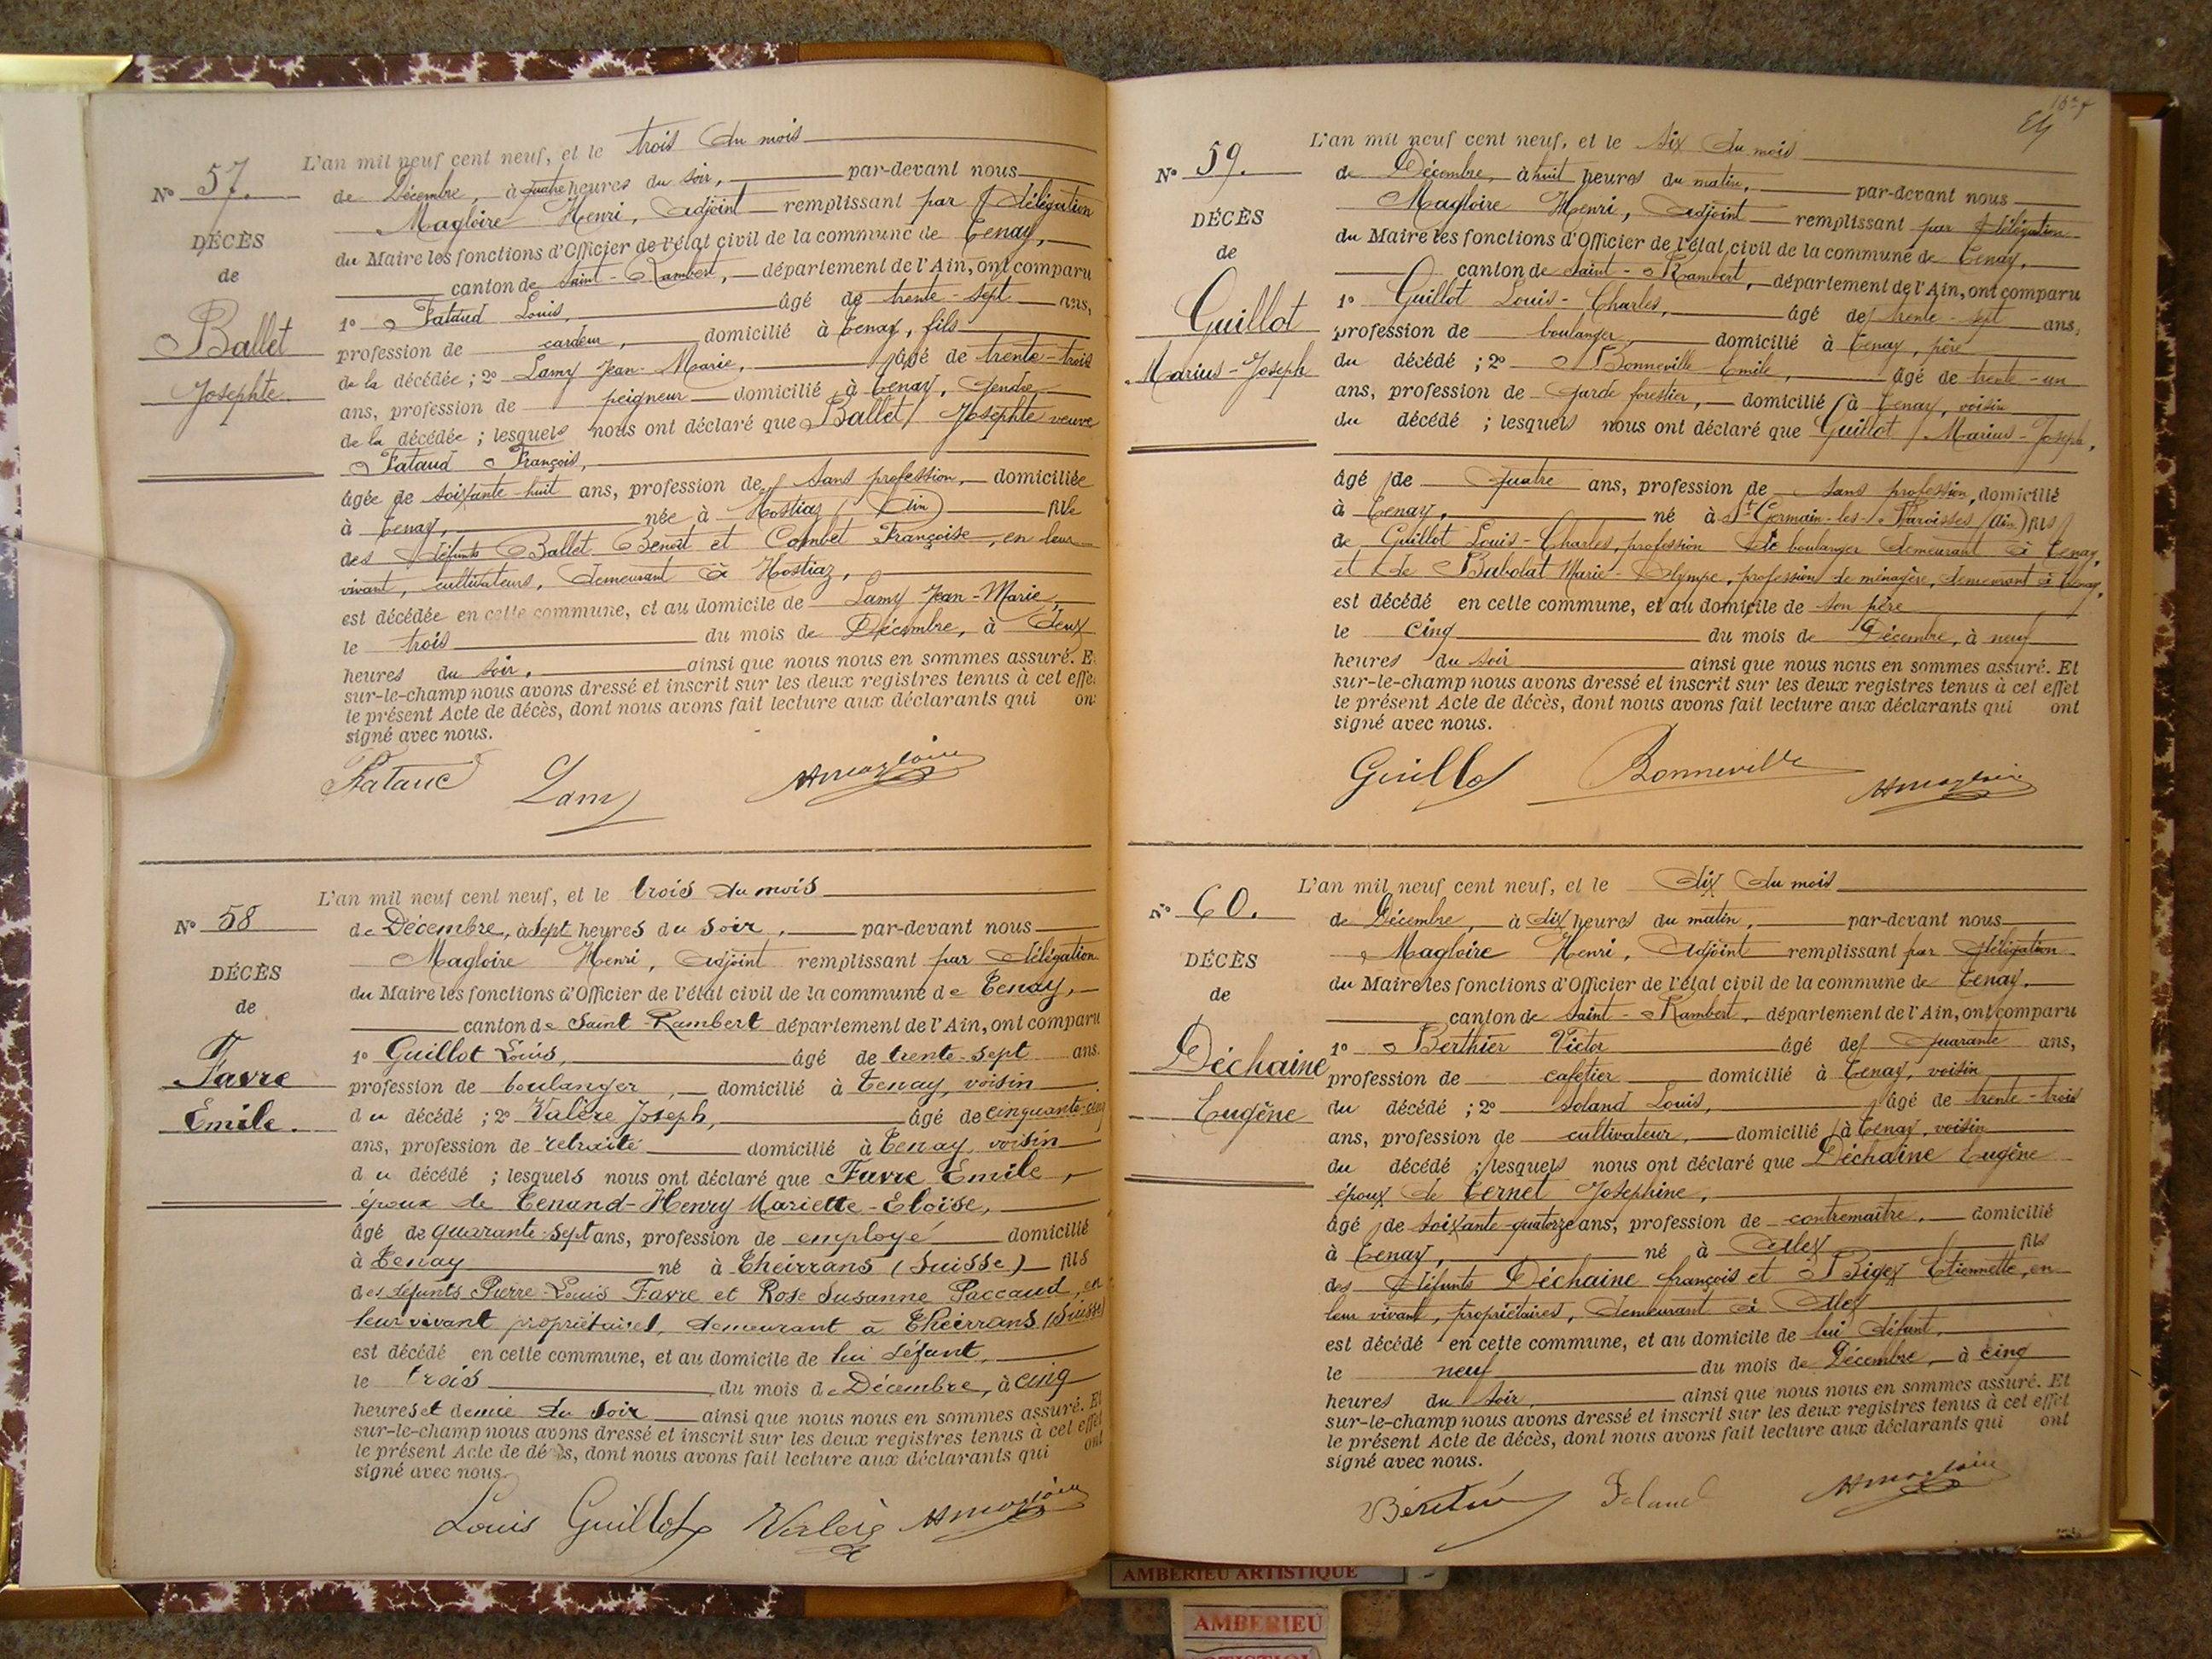 L'an mil neuf cent neuf, et le trois du mois
N° 57.
de Décembre, à quatre heures du soir, par-devant nous
Magloire Henri, adjoint remplissant par délégation
DÉCÈS
du Maire les fonctions d'Officier de l'état civil de la commune de Tenay,
de
canton de Saint-Rambert, département de l'Ain, ont comparu
Ballet
1° Fataud Louis, âgé de trente-sept ans,
profession de cardeur, domicilié à Tenay, fils
Josephte.
de la décédée ; 2° Lamy Jean-Marie, âgé de trente-trois
ans, profession de peigneur domicilié à Tenay, gendre
de la décédée ; lesquels nous ont déclaré que Ballet Josephte veuve
Fataud François,
âgée de soixante-huit ans, profession de sans profession, domiciliée
à Tenay, née à Hostiaz (Ain) fille
des défunts Ballet Benoît et Combet Françoise, en leur
vivant, cultivateurs, demeurant à Hostiaz,
est décédée en cette commune, et au domicile de Lamy Jean-Marie,
le trois du mois de Décembre, à deux
heures du soir, ainsi que nous nous en sommes assuré. E
sur-le-champ nous avons dressé et inscrit sur les deux registres tenus à cet effe
le présent Acte de décès, dont nous avons fait lecture aux déclarants qui on
signé avec nous.
Fataud Lamy HMagloire
L'an mil neuf cent neuf, et le trois du mois
N° 58
de Décembre, à sept heures du soir, par-devant nous
Magloire Henri, adjoint remplissant par délégation
DÉCÈS
du Maire les fonctions d'Officier de l'état civil de la commune de Tenay,
de
canton de Saint-Rambert département de l'Ain, ont comparu
Favre
1° Guillot Louis, âgé de trente-sept ans.
profession de boulanger, domicilié à Tenay, voisin
Emile.
du décédé ; 2° Valère Joseph, âgé de cinquante-cinq
ans, profession de retraité domicilié à Tenay, voisin
du décédé ; lesquels nous ont déclaré que Favre Emile,
époux de Tenand-Henry Mariette-Eloïse,
âgé de quarante-sept ans, profession de employé domicilié
à Tenay né à Theirrans (Suisse) fils
des défunts Pierre-Louis Favre et Rose Susanne Paccaud, en
leur vivant propriétaires, demeurant à Theirrans (Suisse)
est décédé en cette commune, et au domicile de lui défunt,
le trois du mois de Décembre, à cinq
heures et demie du soir ainsi que nous nous en sommes assuré. Et
sur-le-champ nous avons dressé et inscrit sur les deux registres tenus à cet effet
le présent Acte de décès, dont nous avons fait lecture aux déclarants qui ont
signé avec nous.
Louis Guillot Valère HMagloire
L'an mil neuf cent neuf, et le six du mois
N° 59.
de Décembre, à huit heures du matin, par-devant nous
Magloire Henri, adjoint remplissant par délégation
DÉCÈS
du Maire les fonctions d'Officier de l'état civil de la commune de Tenay,
de
canton de Saint-Rambert, département de l'Ain, ont comparu
Guillot
1° Guillot Louis-Charles, âgé de trente-sept ans,
profession de boulanger, domicilié à Tenay, père
Marius-Joseph
du décédé ; 2° Bonneville Emile, âgé de trente-un
ans, profession de garde forestier, domicilié à Tenay, voisin
du décédé ; lesquels nous ont déclaré que Guillot Marius-Joseph,
âgé de quatre ans, profession de sans profession, domicilié
à Tenay, né à St Germain-les-Paroisses (Ain) fils
de Guillot Louis-Charles, profession de boulanger demeurant à Tenay,
et de Babolat Marie-Olympe, profession de ménagère, demeurant à Tenay,
est décédé en cette commune, et au domicile de son père
le cinq du mois de Décembre, à neuf
heures du soir ainsi que nous nous en sommes assuré. Et
sur-le-champ nous avons dressé et inscrit sur les deux registres tenus à cet effet
le présent Acte de décès, dont nous avons fait lecture aux déclarants qui ont
signé avec nous.
Guillot Bonneville HMagloire
L'an mil neuf cent neuf, et le dix du mois
N° 60.
de Décembre, à dix heures du matin, par-devant nous
Magloire Henri, adjoint remplissant par délégation
DÉCÈS
du Maire les fonctions d'Officier de l'état civil de la commune de Tenay,
de
canton de Saint-Rambert, département de l'Ain, ont comparu
Déchaine
1° Berthier Victor âgé de quarante ans,
profession de cafetier domicilié à Tenay, voisin
Eugêne
du décédé ; 2° Soland Louis, âgé de trente-trois
ans, profession de cultivateur, domicilié à Tenay, voisin
du décédé ; lesquels nous ont déclaré que Déchaine Eugêne
époux de Ternet Josephine,
âgé de soixante-quatorze ans, profession de contremaître, domicilié
à Tenay, né à Alex fils
des défunts Déchaine françois et Bigex Etiennette, en
leur vivant, propriétaires, demeurant à Alex
est décédé en cette commune, et au domicile de lui défunt,
le neuf du mois de Décembre, à cinq
heures du soir, ainsi que nous nous en sommes assuré. Et
sur-le-champ nous avons dressé et inscrit sur les deux registres tenus à cet effet
le présent Acte de décès, dont nous avons fait lecture aux déclarants qui ont
signé avec nous.
HMagloire
AMBERIEU ARTISTIQUE
AMBERIEU